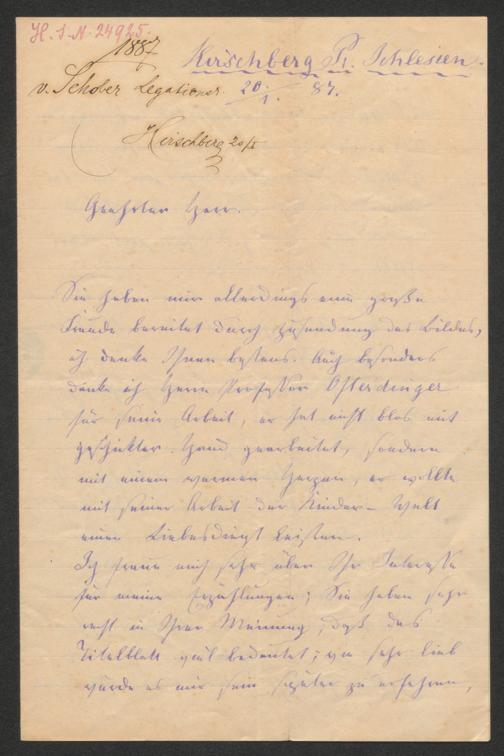 H. I. N. 24925.
1887
Hirschberg Pr. Schlesien.
v. Schober Legationsr.
20./1. 87.
Hirschberg 20/I
Geehrter Herr.
Sie haben mir allerdings eine große
Freude bereitet durch Zusendung des Bildes,
ich danke Ihnen bestens. Auch besonders
danke ich Herrn Professor Ofterdinger
für seine Arbeit, er hat nicht blos mit
geschickter Hand gearbeitet, sondern
mit einem warmen Herzen, er wollte
mit seiner Arbeit der Kinder-Welt
einen Liebesdienst leisten.
Ich freue mich sehr über Ihr Interesse
für meine Erzählungen; Sie haben sehr
recht in Ihrer Meinung, daß das
Titelblatt viel bedeutet; wie sehr lieb
würde es mir sein später zu erfahren,